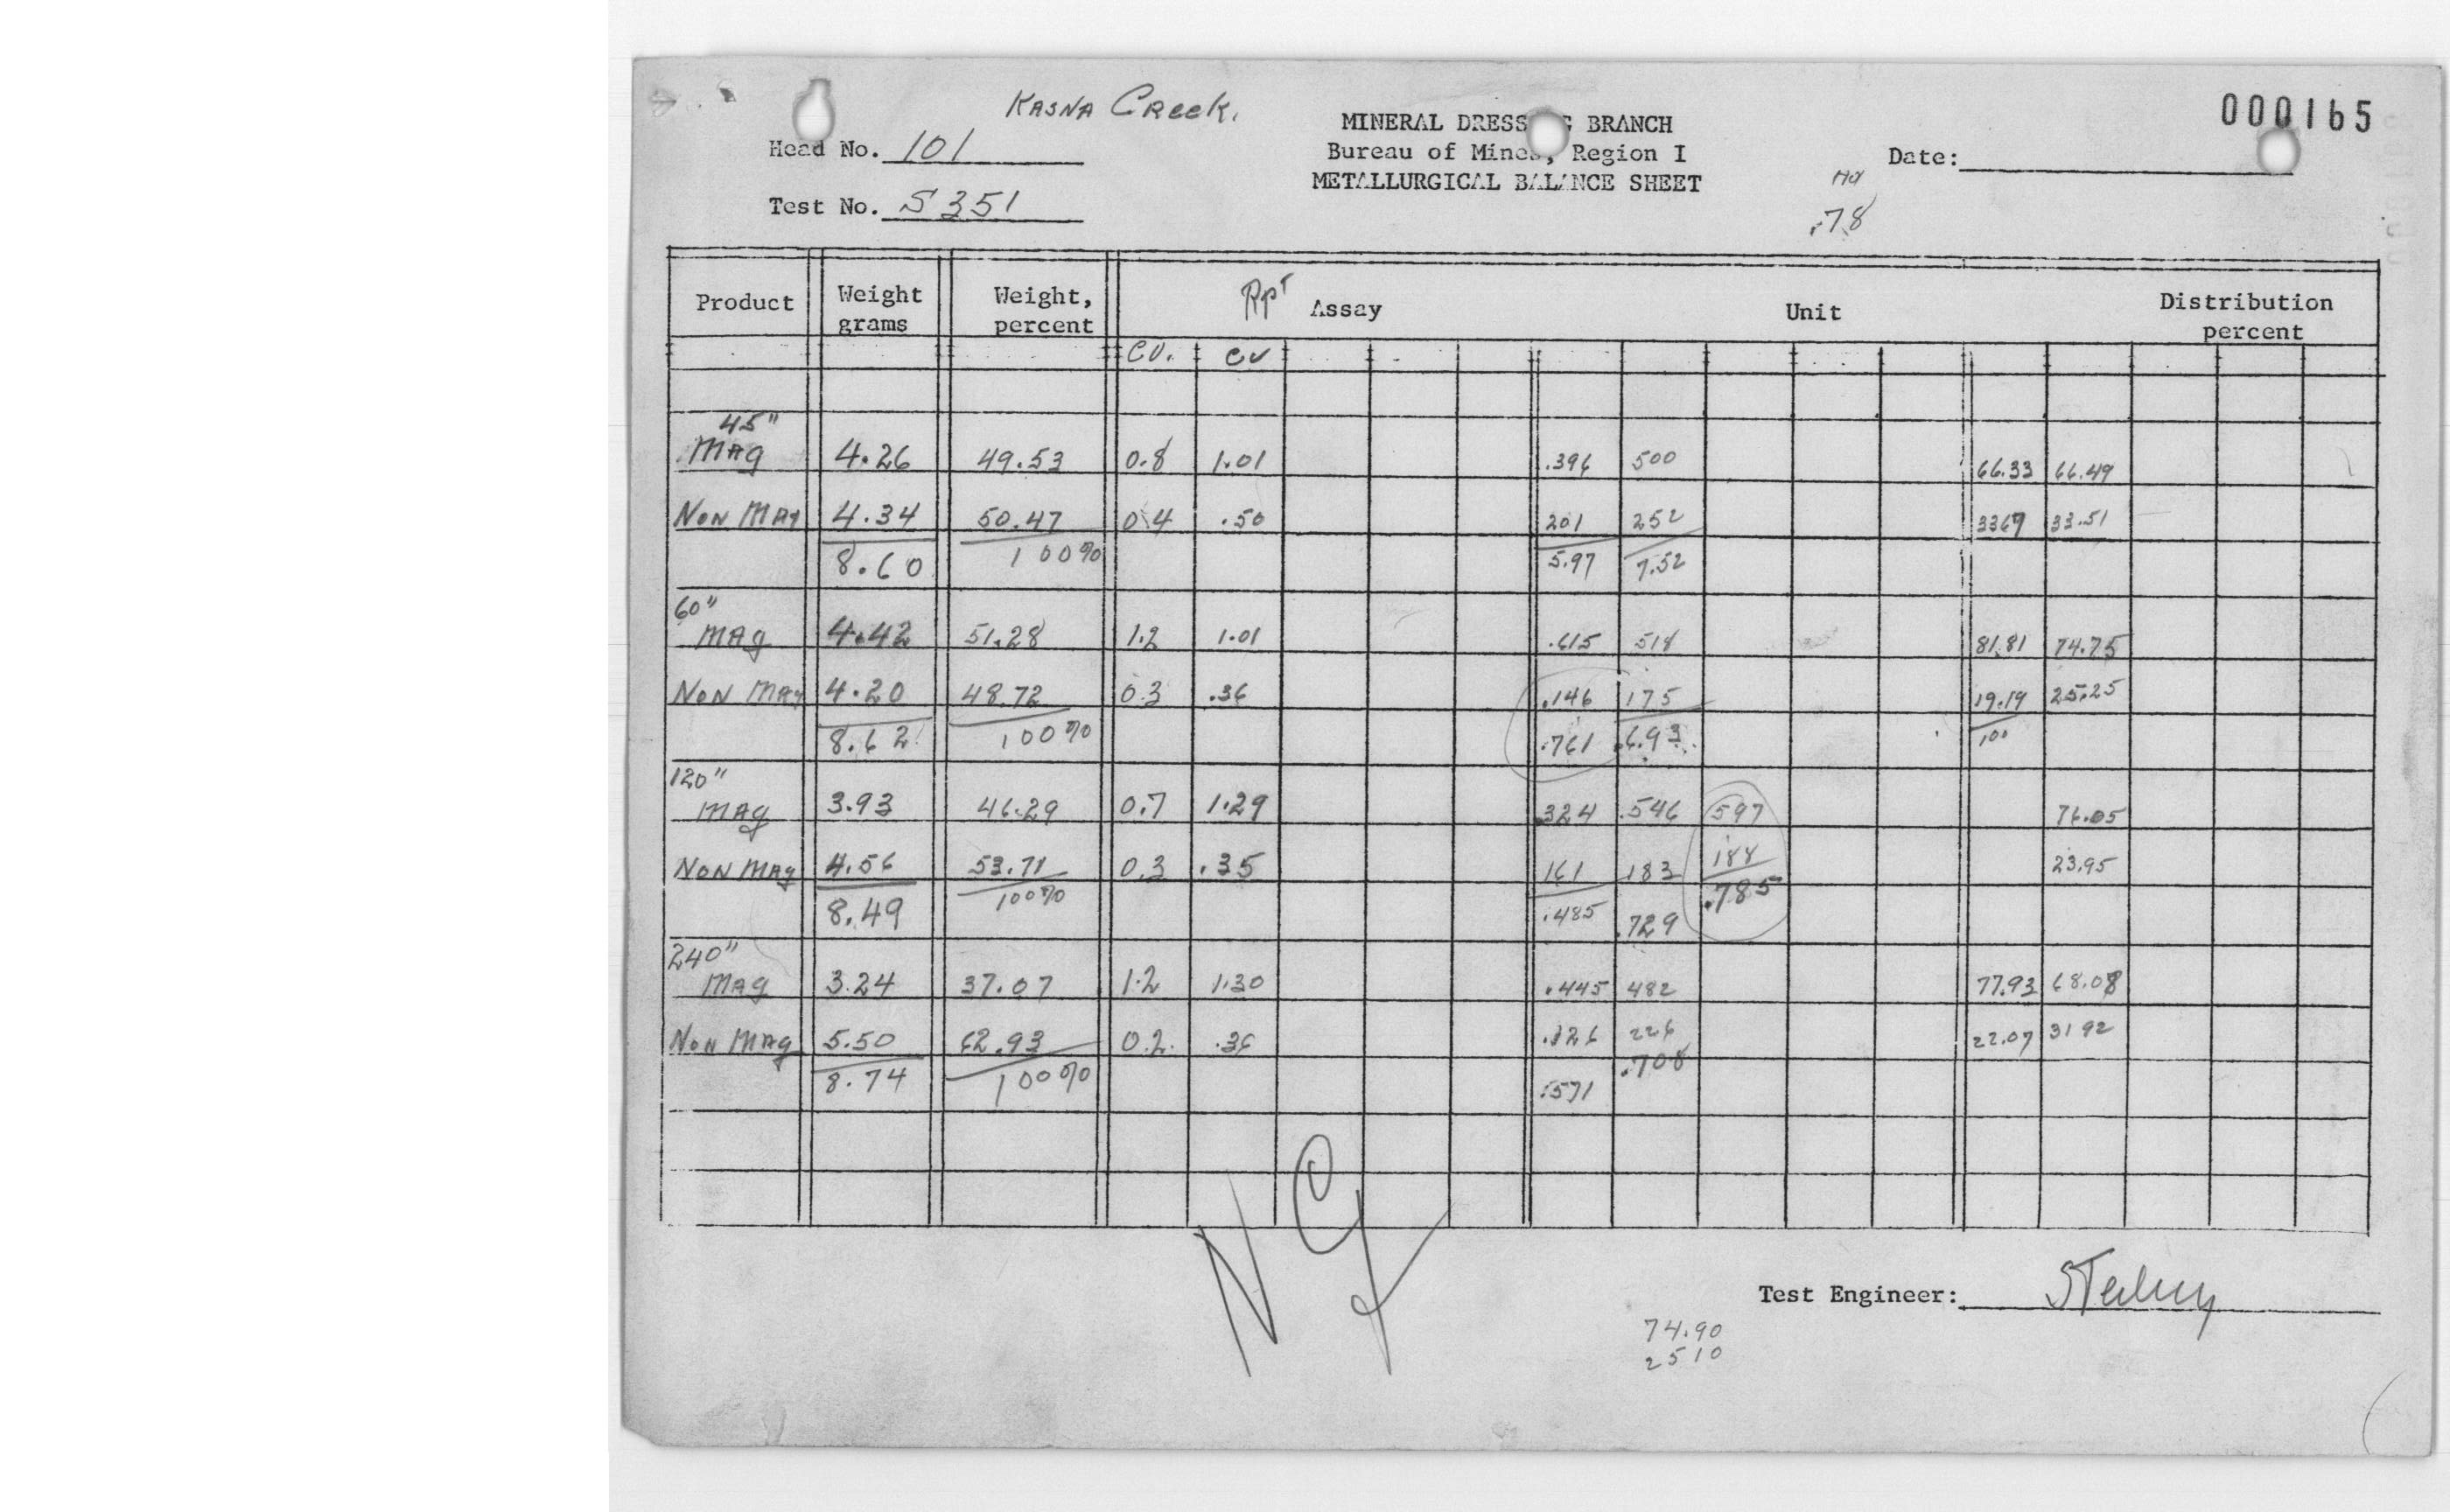 Kasna Creek.
000165
MINERAL DRESS G BRANCH
Head No. 101
Bureau of Mines, Region I
Date:
METALLURGICAL BALANCE SHEET
Test No. S 351
.78
Product Weight grams Weight, percent Rpt Assay Unit Distribution percent
CU. CU
45"
Mag 4.26 49.53 0.8 1.01 .396 500 66.33 66.49
Non Mag 4.34 50.47 0.4 .50 201 252 3367 33.51
8.60 100% 5.97 7.52
60"
Mag 4.42 51.28 1.2 1.01 .615 518 81.81 74.75
Non Mag 4.20 48.72 0.3 .36 .146 175 19.19 25.25
8.62 100% .761 .6.93 100
120"
Mag 3.93 46.29 0.7 1.29 .324 .546 597 76.05
Non Mag 4.56 53.71 0.3 .35 161 183 188 23.95
8.49 100% .485 .729 .785
240"
Mag 3.24 37.07 1.2 1.30 .445 482 77.93 68.08
Non Mag 5.50 62.93 0.2 .36 .126 226 22.07 31 92
8.74 100% .571 .708
Test Engineer:
74.90
2510